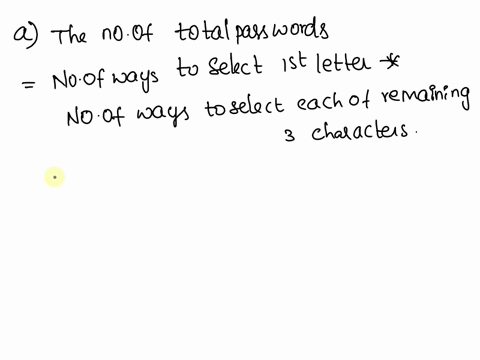 a) The no.of total passwords
= No.of ways to select 1st letter *
No.of ways to select each of remaining
3 characters.